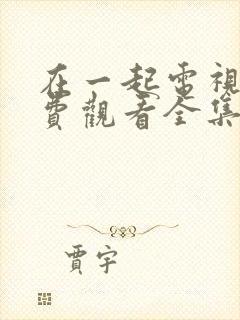 在一起電視
費觀看全集
賈宇